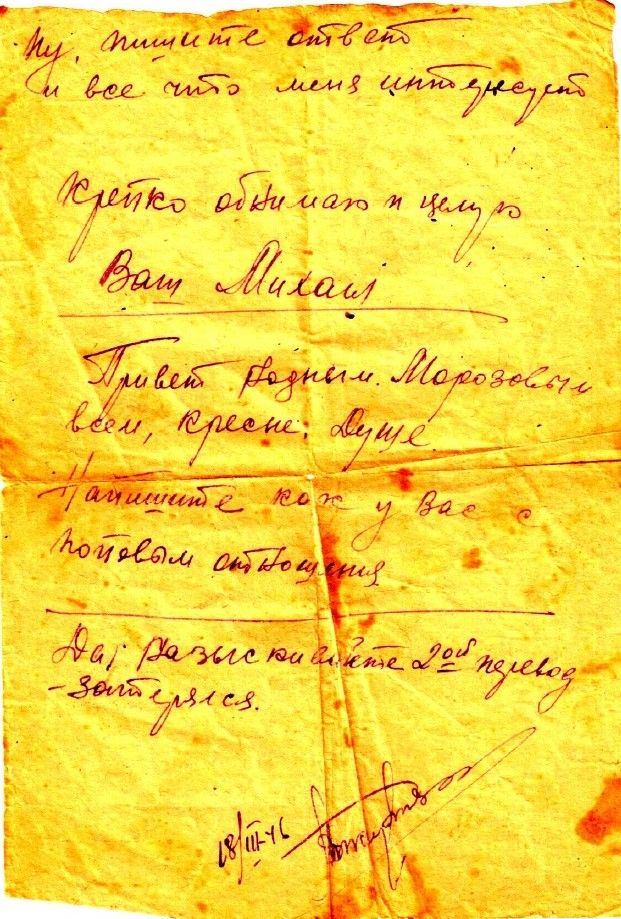 Ну, пишите ответ
и все что меня интересует
Крепко обнимаю и целую
Ваш Михаил
Привет родным. Морозовым
всем, кресне, Дуще
Напишите как у вас с
Поповым отношения
Да, разыскивайте 2ой перевод
- затерялся.
18/III-46